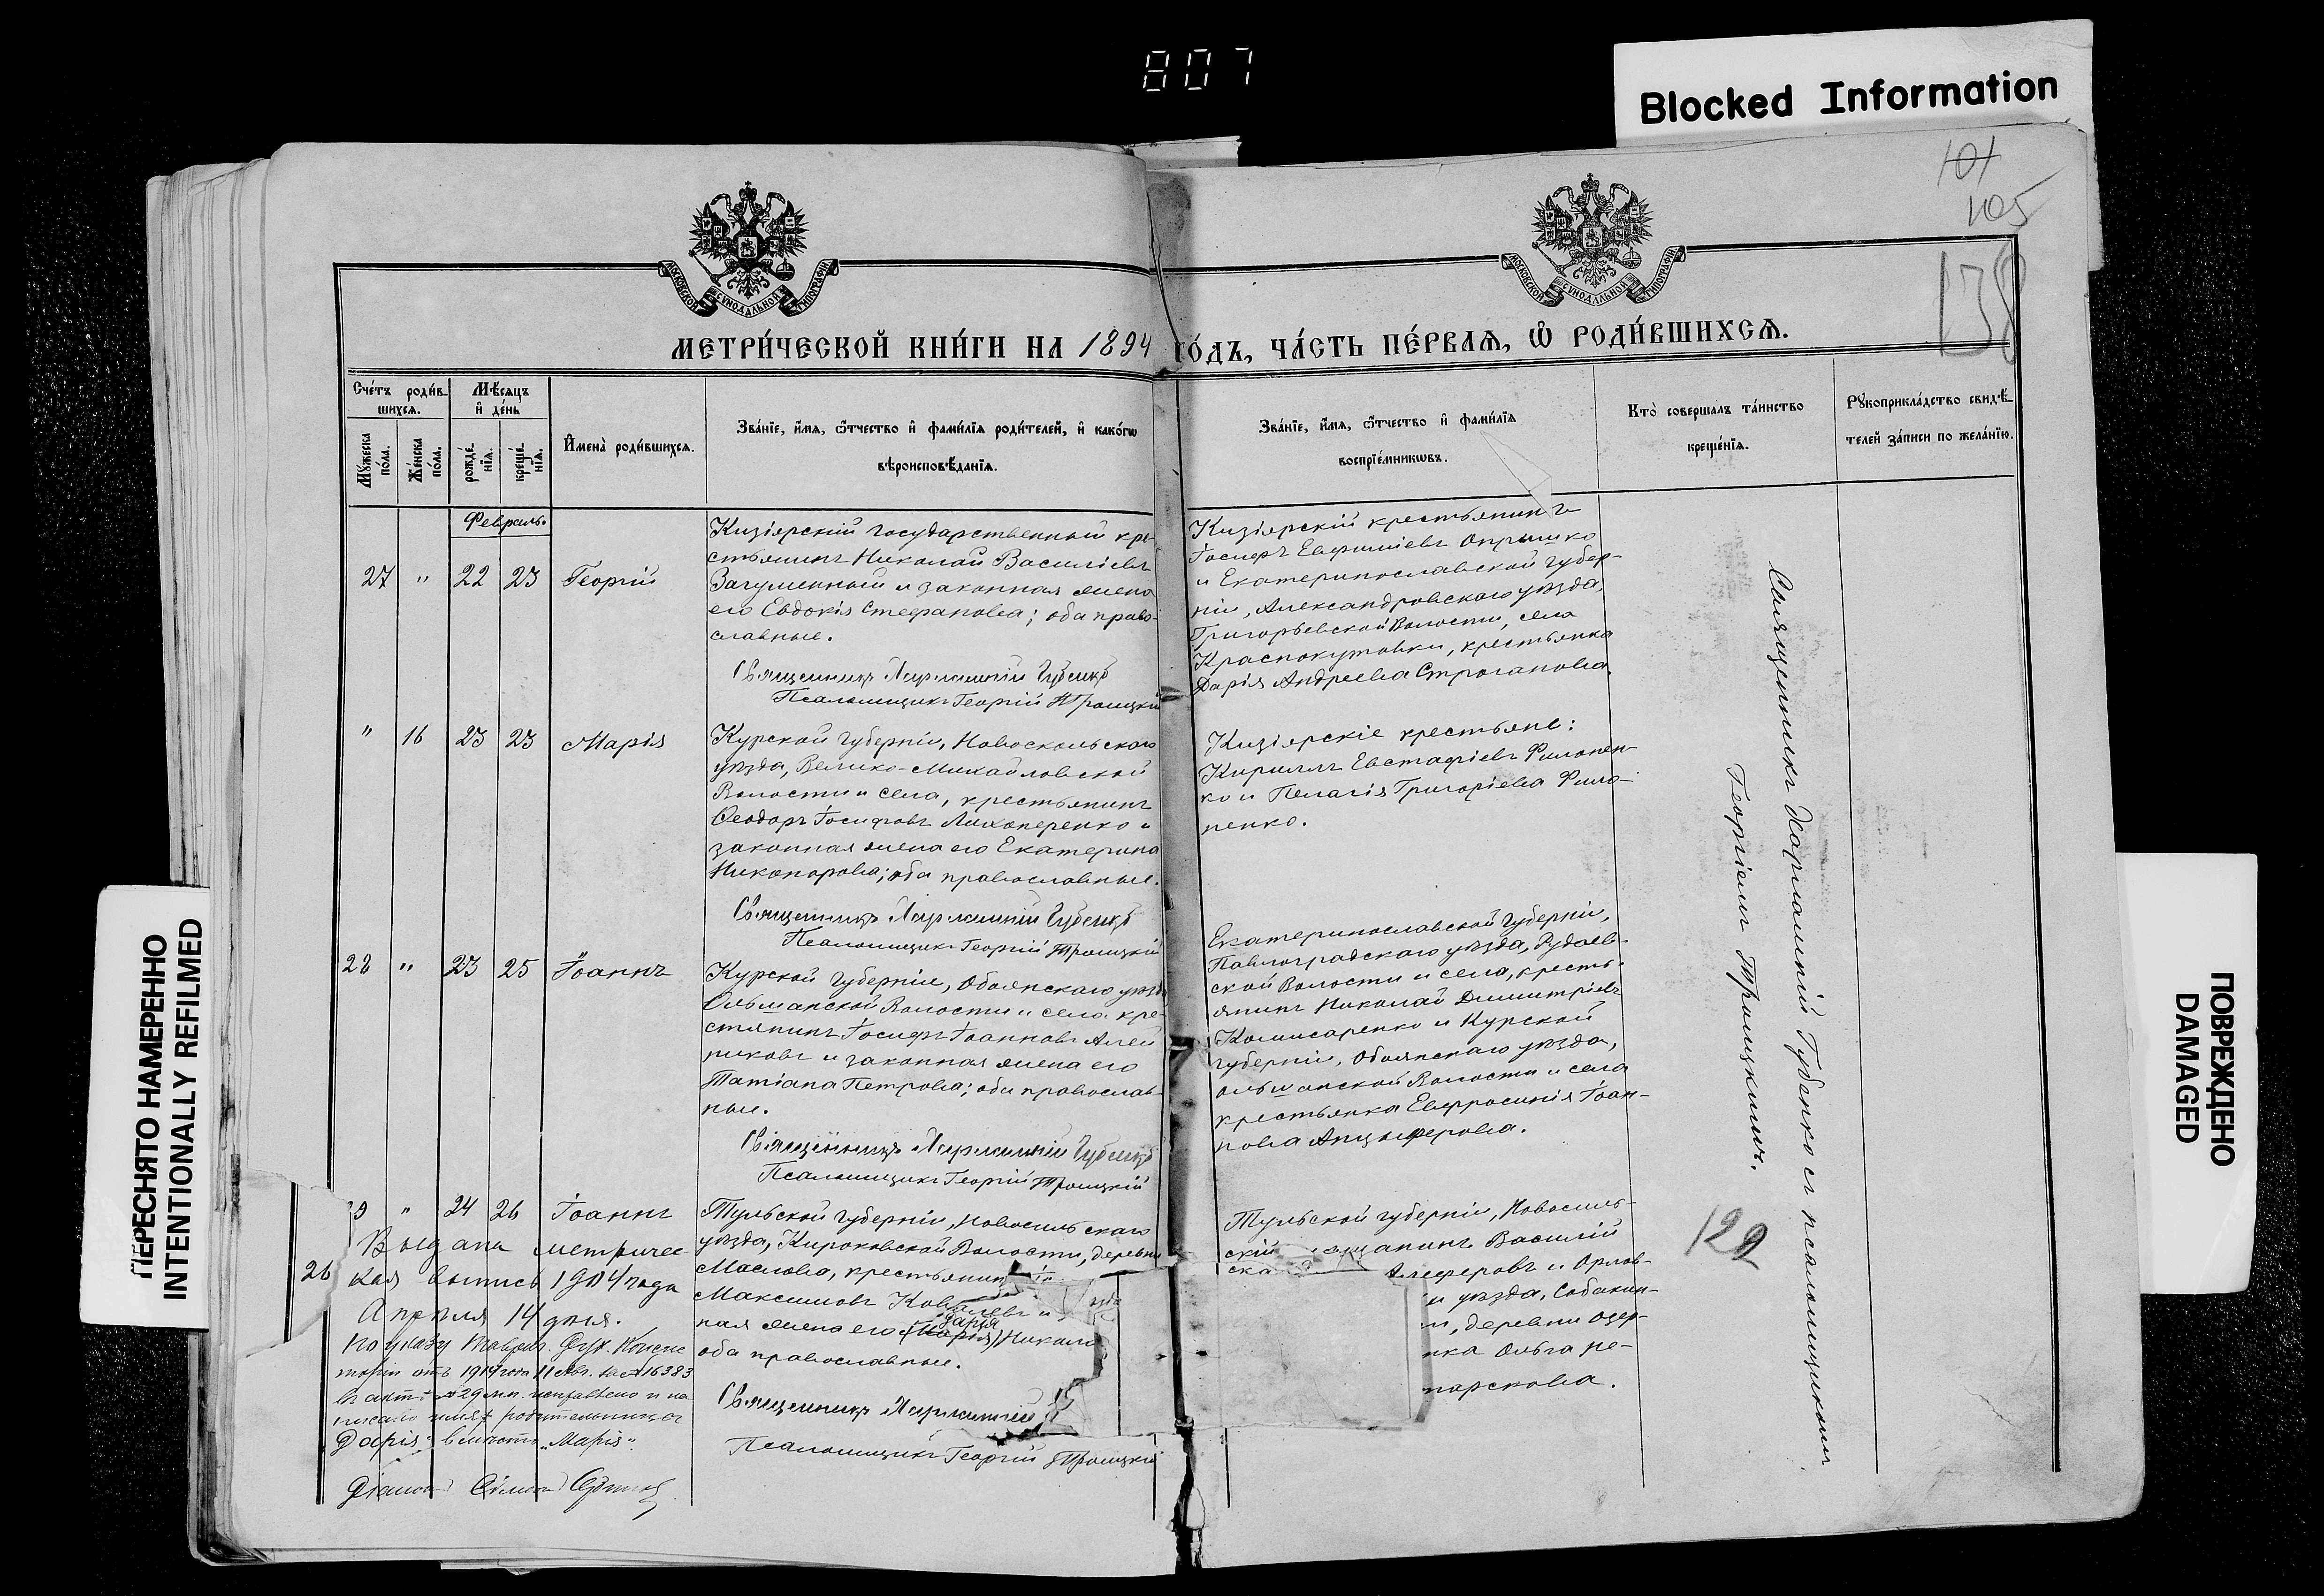 807
Blocked Information
101
105
138
МОСКОВСКОЙ СУНОДАЛЬНОЙ ТИПОГРАФІИ
МОСКОВСКОЙ СУНОДАЛЬНОЙ ТИПОГРАФІИ
МЕТРИ́ЧЕСКОЙ КНИ́ГИ НА 1894 ГО́ДЪ, ЧА́СТЬ ПЕ́РВАѦ, Ѡ҆ РОДИ́ВШИХСѦ.
Сче́тъ роди́в-
шихсѧ.
Мѣ́сѧцъ
и҆ де́нь
Мꙋ́жеска
по́ла.
Же́нска
по́ла.
рожде́-
нїѧ.
креще́-
нїѧ.
И҆мена̀ роди́вшихсѧ.
Зва́нїе, и҆́мѧ, ѻ҆́тчество и҆ фами́лїѧ роди́телей, и҆ како́гѡ
вѣроисповѣ́данїѧ.
Зва́нїе, и҆́мѧ, ѻ҆́тчество и҆ фами́лїѧ
воспрїе́мникѡвъ.
Кто̀ соверша́лъ та́инство
креще́нїѧ.
Рꙋкоприкла́дство свидѣ́-
телей за́писи по жела́нїю.
Февраль.
27 " 22 23 Георгій
Кизіярскій государственный кре-
стьянинъ Николай Василіевъ
Загуменный и законная жена
его Евдокія Стефанова; оба право-
славные.
Священникъ Харлампій Губенко
Псаломщикъ Георгій Троицкій
Кизіярскій крестьянинъ
Іосифъ Евфиміевъ Опришко
и Екатеринославской губер-
ніи, Александровскаго уѣзда,
Григорьевской Волости, села
Краснокутовки, крестьянка
Дарія Андреева Строганова.
" 16 23 23 Марія
Курской губерніи, Новооскольскаго
уѣзда, Велико-Михайловской
Волости и села, крестьянинъ
Ѳеодоръ Іосифовъ Лихоперенко и
законная жена его Екатерина
Никонорова; оба православные.
Священникъ Харлампій Губенко
Псаломщикъ Георгій Троицкій
Кизіярскіе крестьяне:
Кириллъ Евстафіевъ Филонен-
ко и Пелагія Григоріева Фило-
ненко.
28 " 23 25 Іоаннъ
Курской губерніи, Обоянскаго уѣзда
Ольшанской Волости и села кре-
стянинъ Іосифъ Іоанновъ Алей
никовъ и законная жена его
Татіана Петрова; оба православ-
ные.
Священникъ Харлампій Губенко
Псаломщикъ Георгій Троицкій
Екатеринославской губерніи,
Павлоградскаго уѣзда, Рудаев-
ской Волости и села, кресть-
янинъ Николай Димитріевъ
Комисаренко и Курской
губерніи, Обоянскаго уѣзда,
Ольшанской Волости и села
крестьянка Евфросинія Іоан-
нова Анцыферова.
9 " 24 26 Іоаннъ
Тульской губерніи, Новосильскаго
уѣзда, Волости, деревни
Маслова, крестьянинъ
Максимовъ Ковалевъ и
Дарія
ная жена его (Марія)
оба православные.
Священникъ Харлампій
Псаломщикъ Георгій Троицкій
Тульской губерніи, Новосиль-
скій Василій
ска и Орлов-
уѣзда,
деревни Озер-
нка Ольга Пе-
Выдана метричес-
26
кая выпись 1914 года
Апрѣля 14 дня.
По указу Таврич. Дух. Консис
торіи отъ 1914 года за № 16383
въ актѣ № 29 исправлено и на
писано имя родительницы
"Дарія" вмѣсто "Марія".
Священникъ Харлампій Губенко съ псаломщикомъ
Георгіемъ Троицкимъ.
122
ПЕРЕСНЯТО НАМЕРЕННО
INTENTIONALLY REFILMED
ПОВРЕЖДЕНО
DAMAGED